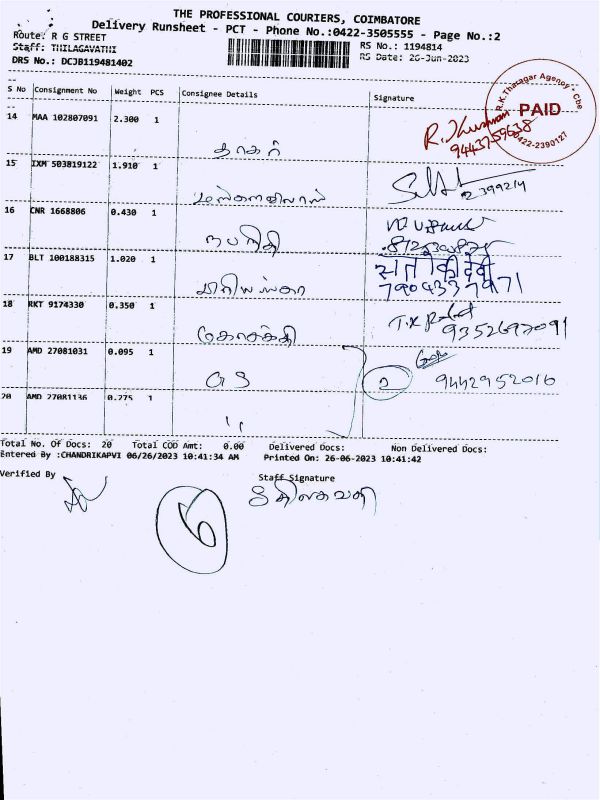 THE PROFESSIONAL COURIERS, COIMBATORE
Delivery Runsheet - PCT - Phone No.:0422-3505555 - Page No.:2
Route: R G STREET
Staff: THILAGAVATHI
RS No.: 1194814
DRS No.: DCJB119481402
RS Date: 26-Jun-2023
S No Consignment No Weight PCS Consignee Details Signature
R.K.Thangar Agency * Cbe
PAID
0422-2390127
14 MAA 102807091 2.300 1
9443759638
15 IXM 503819122 1.910 1
2399214
16 CNR 1668806 0.430 1
நபநிதி
17 BLT 100188315 1.020 1
देवी
7904337971
18 RKT 9174330 0.350 1
T.K
9352697091
19 AMD 27081031 0.095 1 GS 2 9442952016
20 AMD 27081136 0.275 1 ''
Total No. Of Docs: 20 Total COD Amt: 0.00 Delivered Docs: Non Delivered Docs:
Entered By :CHANDRIKAPVI 06/26/2023 10:41:34 AM Printed On: 26-06-2023 10:41:42
Verified By Staff Signature
திலகவதி
6